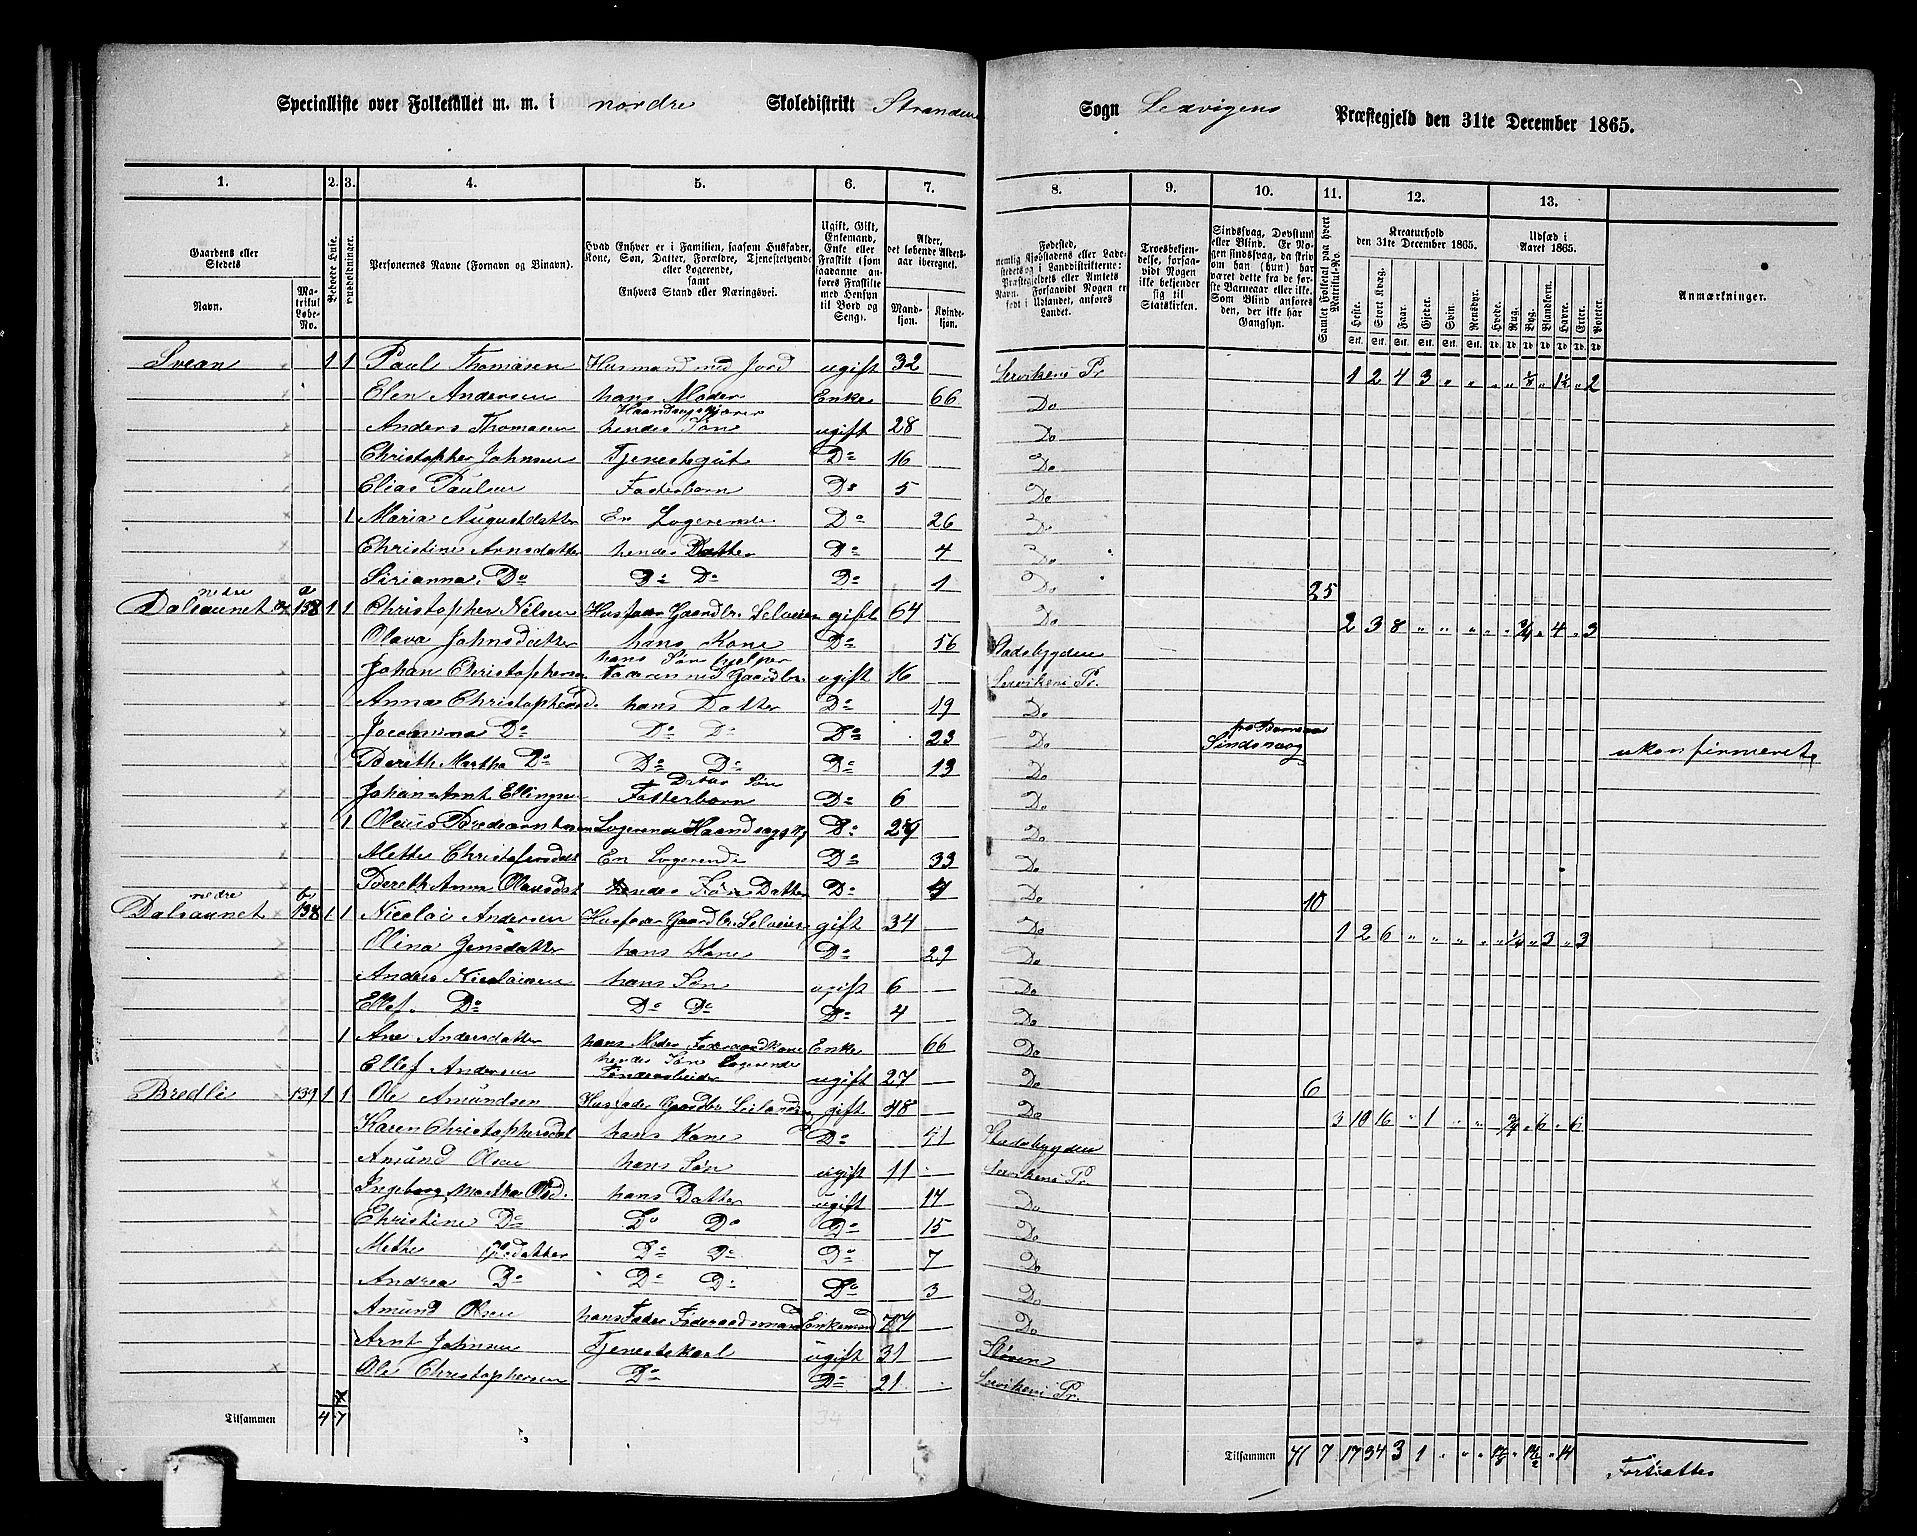 Specialliste over Folketallet m. m. i nordre Skoledistrikt Stranden Sogn Lexvigens Præstegjeld den 31te December 1865.
1. 2. 3. 4. 5. 6. 7. 8. 9. 10. 11. 12. 13.
Gaardens eller Stedets Navn. Matrikul Løbe-No. Beboede Huse. Huusholdninger. Personernes Navne (Fornavn og Binavn). Hvad Enhver er i Familien, saasom Husfader, Kone, Søn, Datter, Forældre, Tjenestetyende eller Logerende, samt Enhvers Stand eller Næringsvei. Ugift, Gift, Enkemand, Enke eller Fraskilt (som saadanne anføres Fraskilte med Hensyn til Bord og Seng). Alder, det løbende Aldersaar iberegnet. Mandkjøn. Kvindekjøn. Fødested, Troesbekjendelse, forsaavidt Nogen ikke bekjender sig til Statskirken. Gamlet Folketal paa hvert Matrikul-No. Kreaturhold den 31te December 1865. Udsæd i Aaret 1865. Anmærkninger.
Heste. Stort Kvæg. Faar. Gjeter. Svin. Rensdyr. Hvede. Rug. Byg. Blandkorn. Havre. Erter. Poteter.
Svean 1 1 Paul Thomasen Husmand med Jord ugift 32 Lexvikens Pr. 1 2 4 3 " " " " 1/8 " 1½ " 2
Elen Andersen hans Moder Enke 66 Do
Anders Thomasen hendes Søn ugift 28 Do
Christopher Johnsen Tjenestegut Do 16 Do
Elias Paulsen Fosterbarn Do 5 Do
1 Maria Augustdatter En Logerende Do 26 Do
Christine Arnsdatter hendes Datter Do 4 Do
Sirianna Do Do Do Do 1 Do
8
Dalsaunet nedre 138 a 1 1 Christopher Nilsen Husfader Gaardbr. Selveier gift 64 Do 2 3 8 " " " " " ¾ " 4 " 3
Olava Johnsdatter hans Kone Do 56 Stadsbygden
Johan Christophersen hans Søn hjelper Faderen med Gaardbr. ugift 16 Lexvikens Pr.
Anna Christophersd. hans Datter Do 19 Do
Do Do Do Do 23 Do Sindssvag ukonfirmeret
Bereth Martha Do Do Do Do 13 Do
Johan Arnt Ellingsen Fosterbarn Do 6 Do
1 Do Do
Mette En Logerende Do 33 Do
Bereth Anna Olausdat hendes Datter Do Do
10
Dalsaunet nedre 138 b 1 1 Nicolai Andersen Husfader Gaardbr. Selveier gift 34 Do 1 2 6 " " " " " ¼ " 3 " 3
Olina Jensdatter hans Kone Do 29 Do
Anders Nicolaisen hans Søn ugift 6 Do
Ellef Do Do Do Do 4 Do
1 Ane Andersdatter hans Moder Føderaadkone Enke 66 Do
Ellef Andersen hendes Søn Logerende ugift 27 Do
6
Bredli 139 1 1 Ole Amundsen Husfader Gaardbr. gift 48 Do 3 10 16 " 1 " " " ¾ " 6 " 6
Karen Christophersdat hans Kone Do Stadsbygden
Amund Olsen hans Søn ugift 11 Lexvikens Pr.
Ingeborg Martha Olsd. hans Datter ugift 17 Do
Christine Do Do Do Do 15 Do
Mette Olsdatter Do Do Do 7 Do
Andrea Do Do Do Do 3 Do
Amund Olsen hans Fader Føderaadsmand Enkemand Do
Arnt Johnsen Tjenestekarl ugift 31 Støren
Ole Christophersen Do Do 21 Lexvikens Pr.
Tilsammen 4 7
Tilsammen 7 17 34 3 1 14
Fortsættes